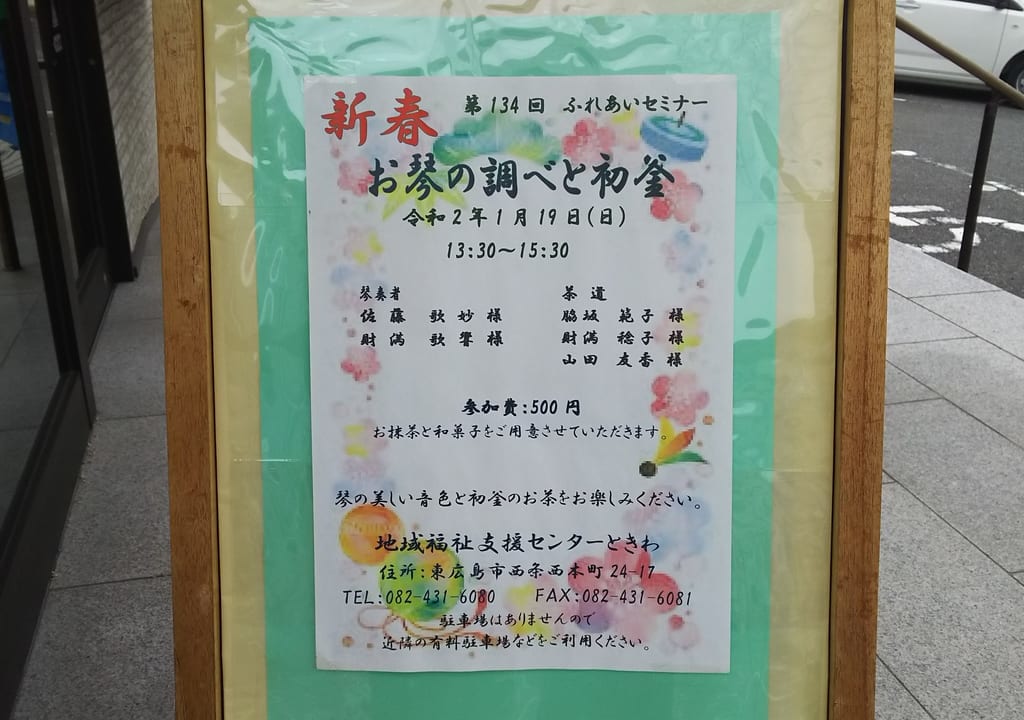 新春
第134回 ふれあいセミナー
お琴の調べと初釜
令和2年1月19日(日)
13:30～15:30
琴奏者
佐藤 歌妙 様
財満 歌響 様
茶道
脇坂 範子 様
財満 稔子 様
山田 友香 様
参加費:500円
お抹茶と和菓子をご用意させていただきます。
琴の美しい音色と初釜のお茶をお楽しみください。
地域福祉支援センターときわ
住所:東広島市西条西本町24-17
TEL:082-431-6080 FAX:082-431-6081
駐車場はありませんので
近隣の有料駐車場などをご利用ください。